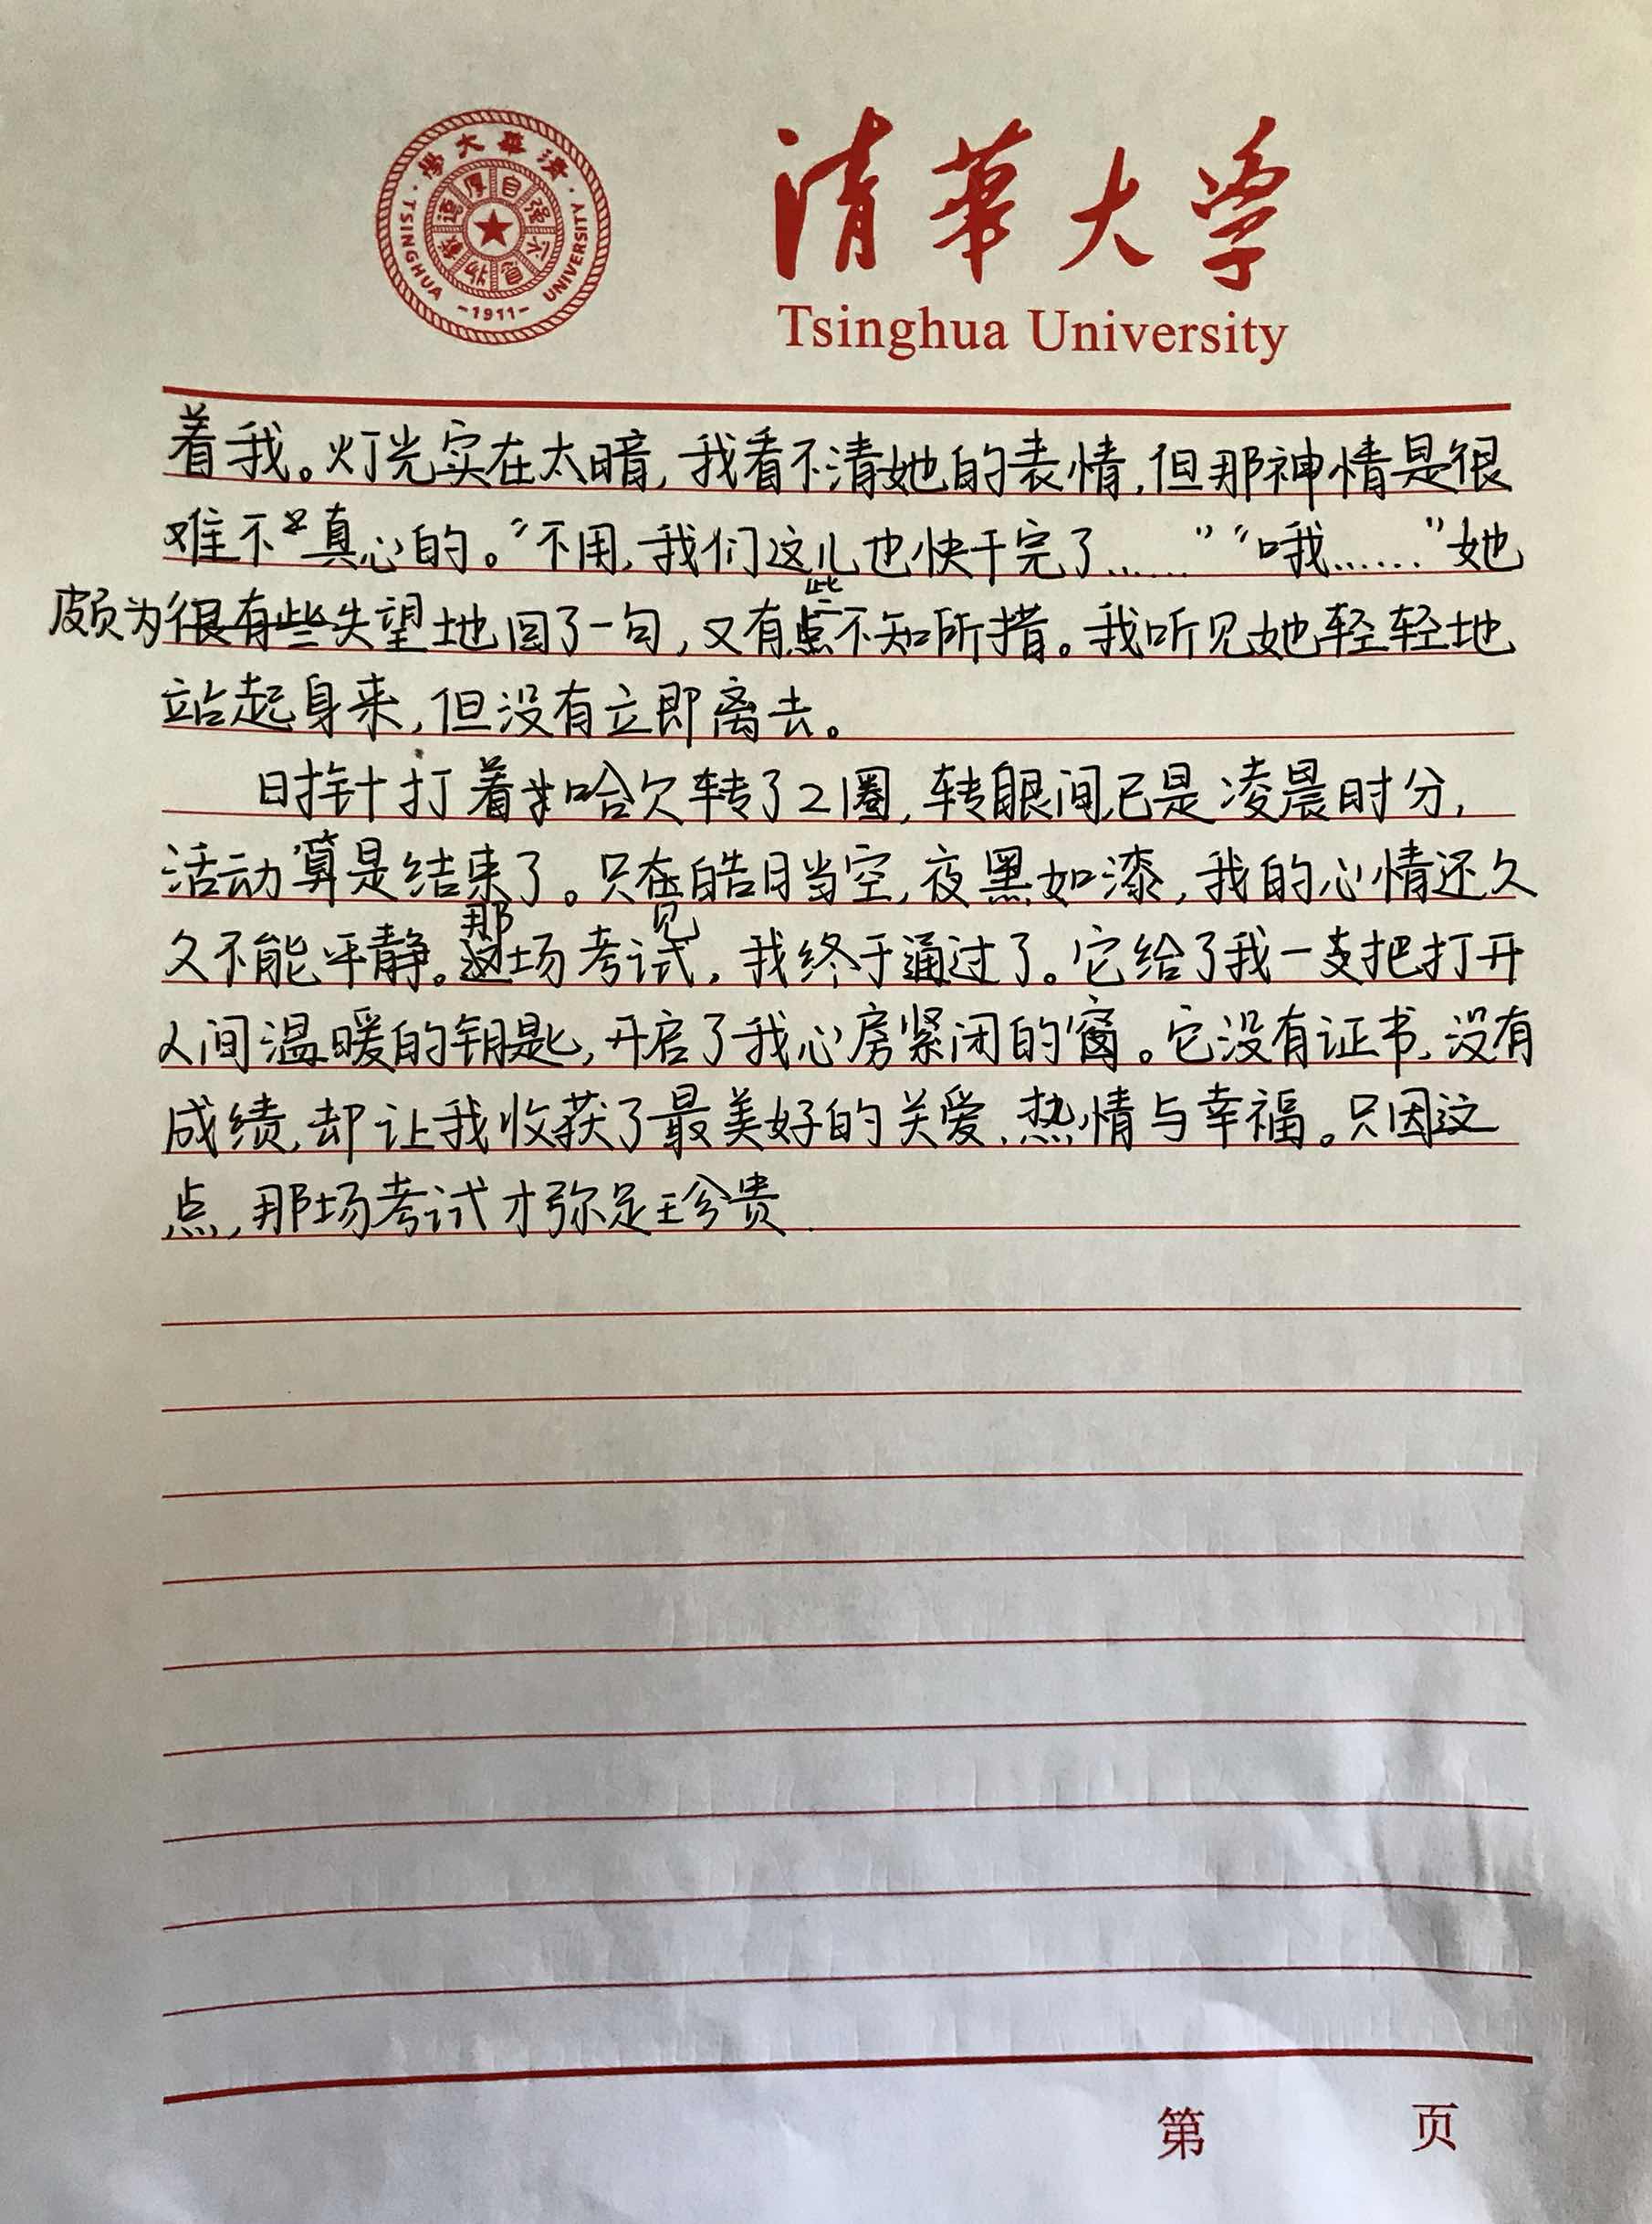 清華大學
TSINGHUA UNIVERSITY
-1911-
自强不息
厚德載物
清华大学
Tsinghua University
着我。灯光实在太暗,我看不清她的表情,但那神情是很
难不是真心的。“不用,我们这儿也快干完了……”“哦……”她
颇为失望地回了一句,又有些不知所措。我听见她轻轻地
站起身来,但没有立即离去。
时针打着哈欠转了2圈,转眼间已是凌晨时分,
活动算是结束了。只见皓月当空,夜黑如漆,我的心情还久
久不能平静。那场考试,我终于通过了。它给了我一把打开
人间温暖的钥匙,开启了我心房紧闭的窗。它没有证书,没有
成绩,却让我收获了最美好的关爱、热情与幸福。只因这
点,那场考试才弥足珍贵.
第 页